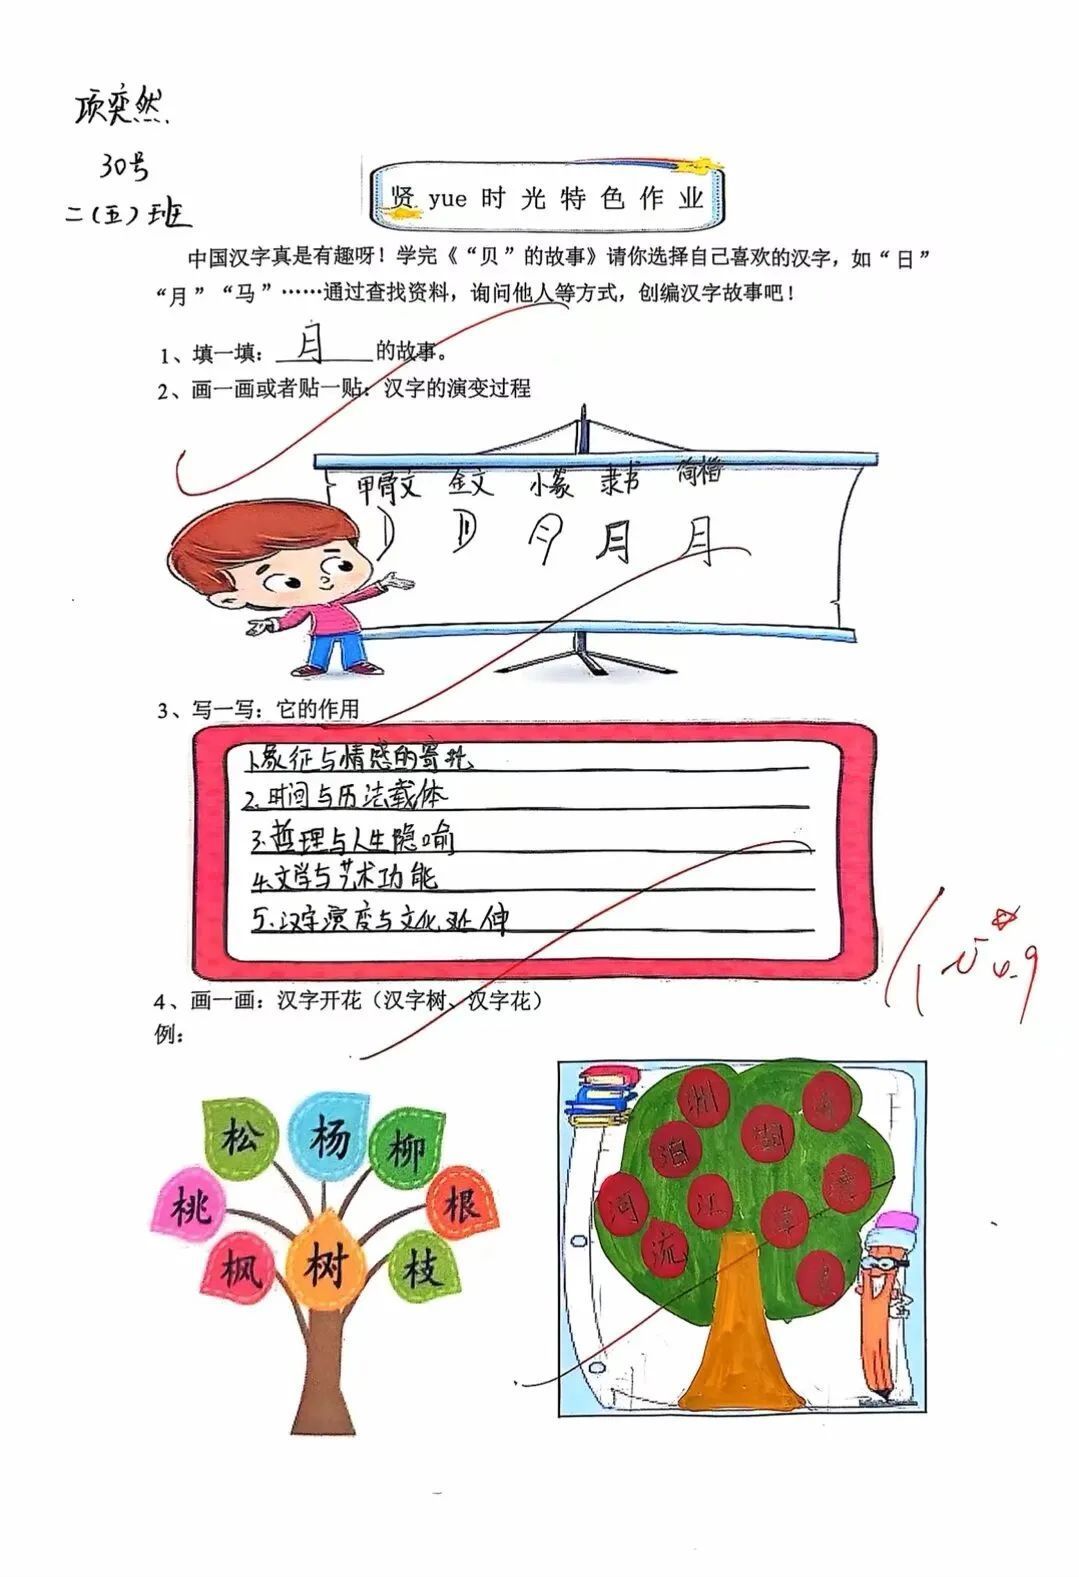 项奕然
30号
二(五)班
贤 yue 时 光 特 色 作 业
中国汉字真是有趣呀！学完《“贝”的故事》请你选择自己喜欢的汉字，如“日”
“月”“马”……通过查找资料，询问他人等方式，创编汉字故事吧！
1、填一填：月的故事。
2、画一画或者贴一贴：汉字的演变过程
甲骨文 金文 小篆 隶书 简楷
月 月
3、写一写：它的作用
1.象征与情感的寄托
2.时间与历法载体
3.哲理与人生隐喻
4.文学与艺术功能
5.汉字演度与文化延伸
4、画一画：汉字开花（汉字树、汉字花）
例：
松 杨 柳
桃 根
枫 树 枝
洲
泪 湖
河 江
流